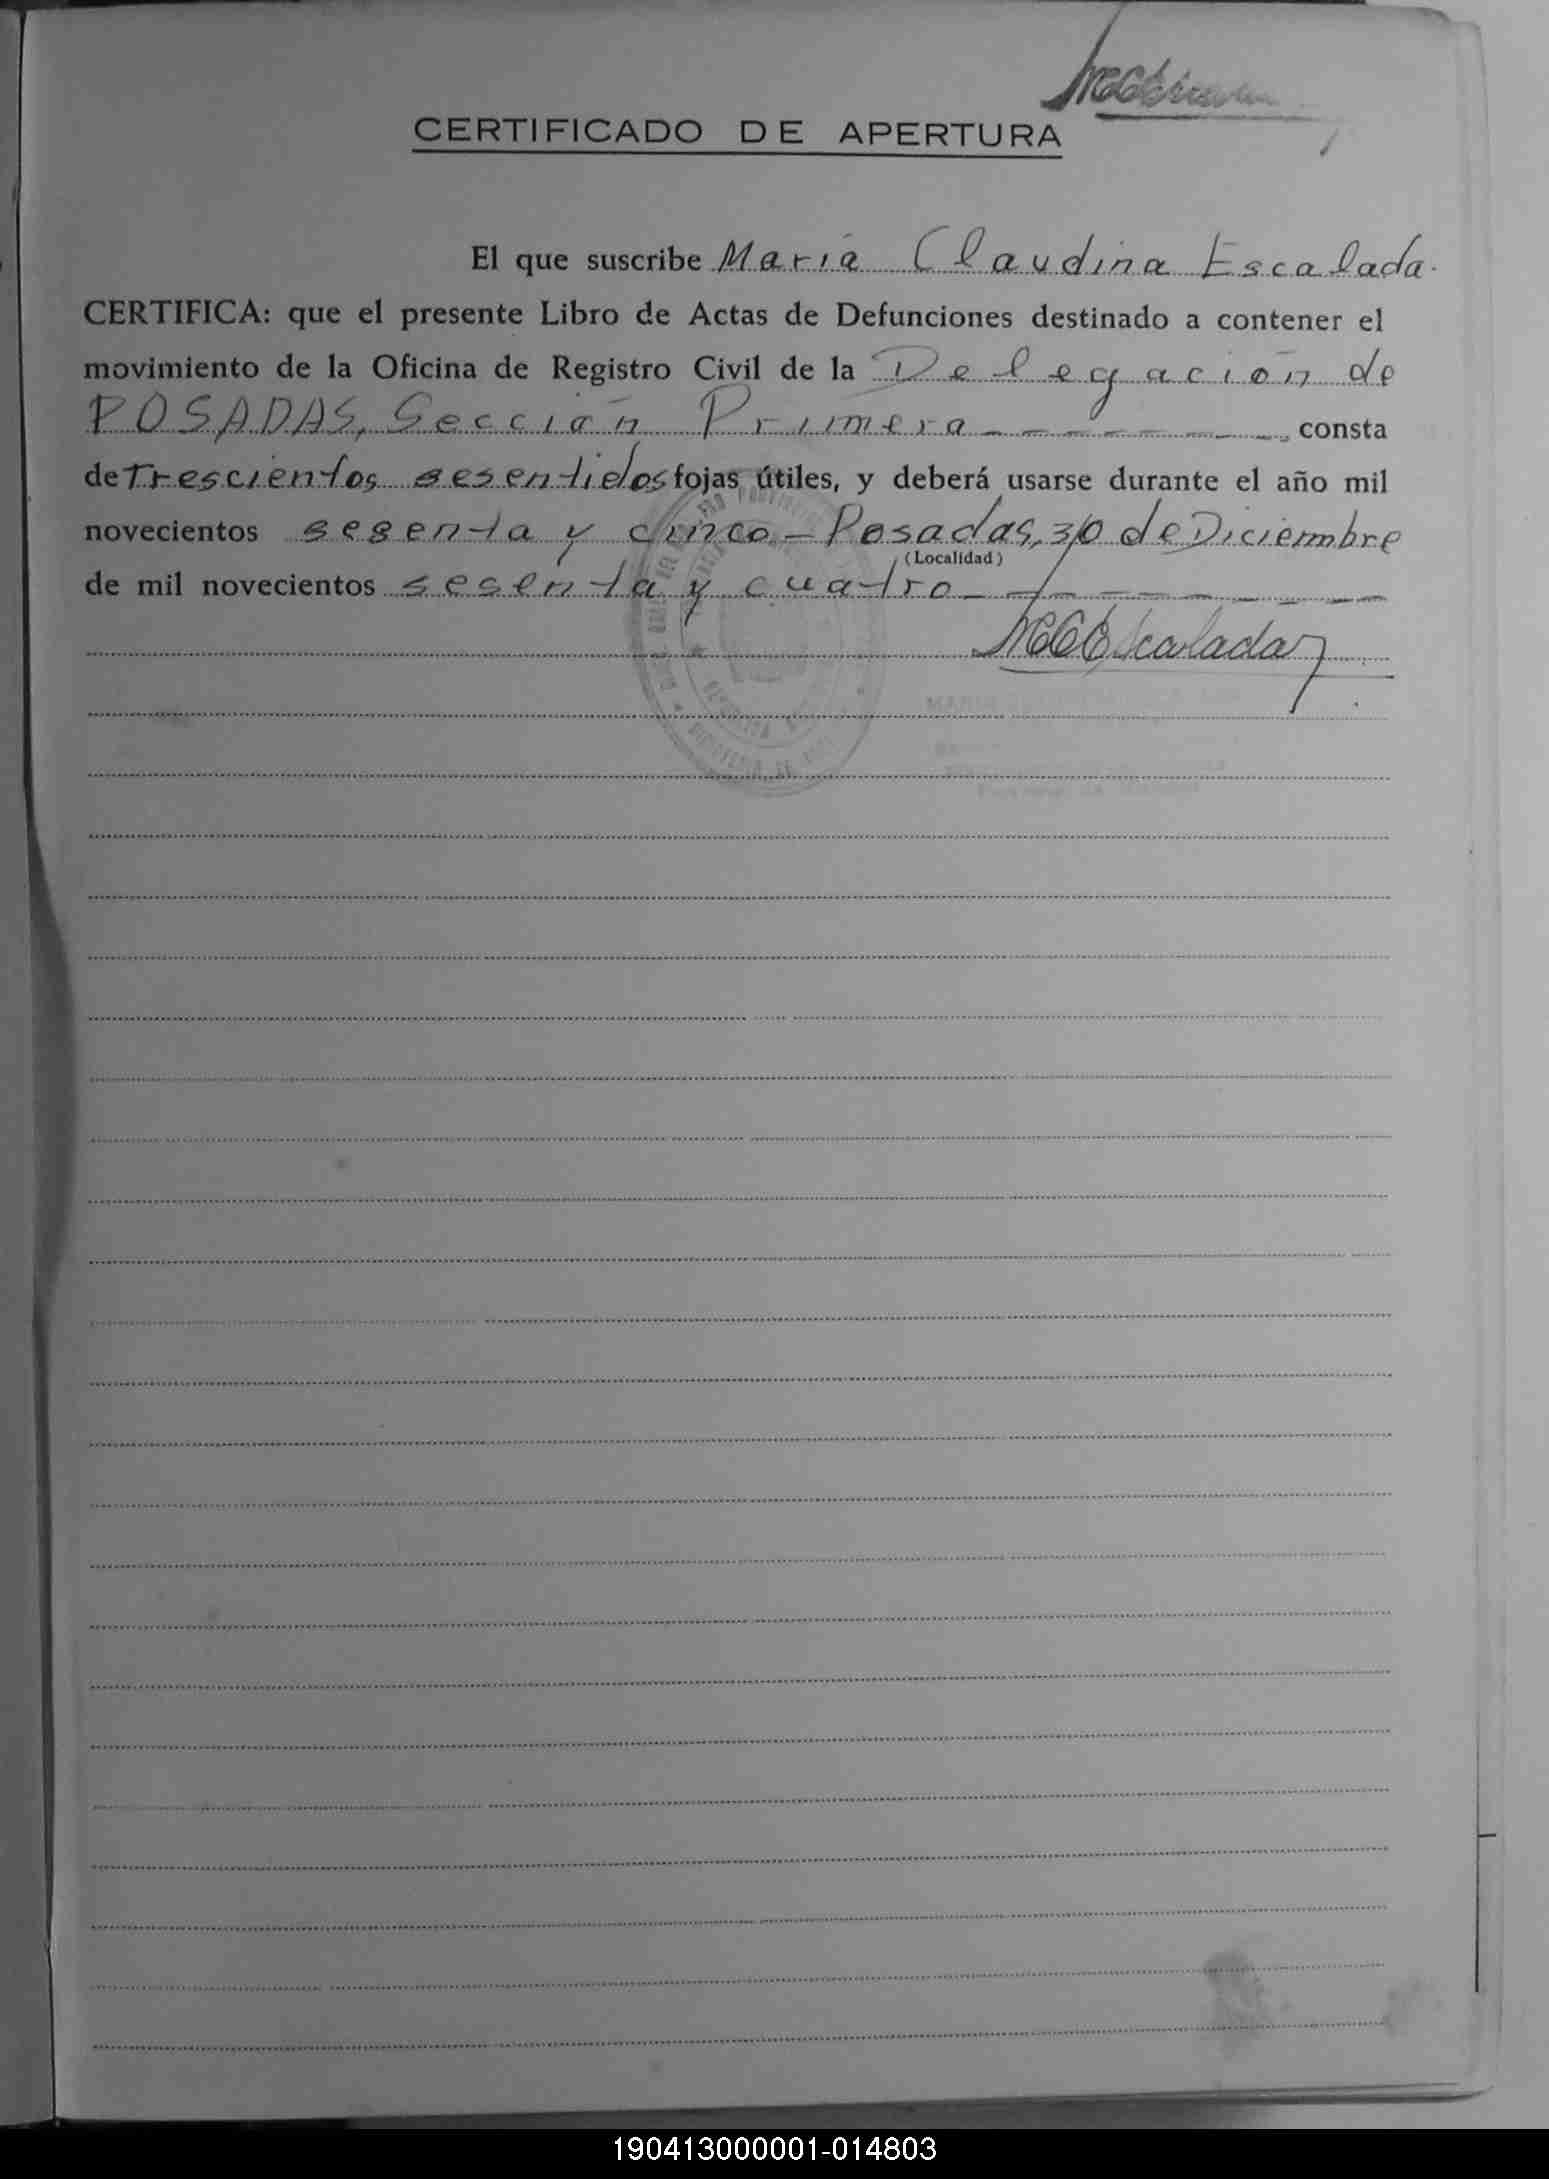 CERTIFICADO DE APERTURA
El que suscribe María Claudina Escalada.
CERTIFICA: que el presente Libro de Actas de Defunciones destinado a contener el
movimiento de la Oficina de Registro Civil de la Delegación de
POSADAS, Sección Primera - - - - - - - consta
de Trescientos sesentidos fojas útiles, y deberá usarse durante el año mil
novecientos sesenta y cinco - Posadas, 30 de Diciembre
(Localidad)
de mil novecientos sesenta y cuatro - - - - - - -
MCEscalada
190413000001-014803